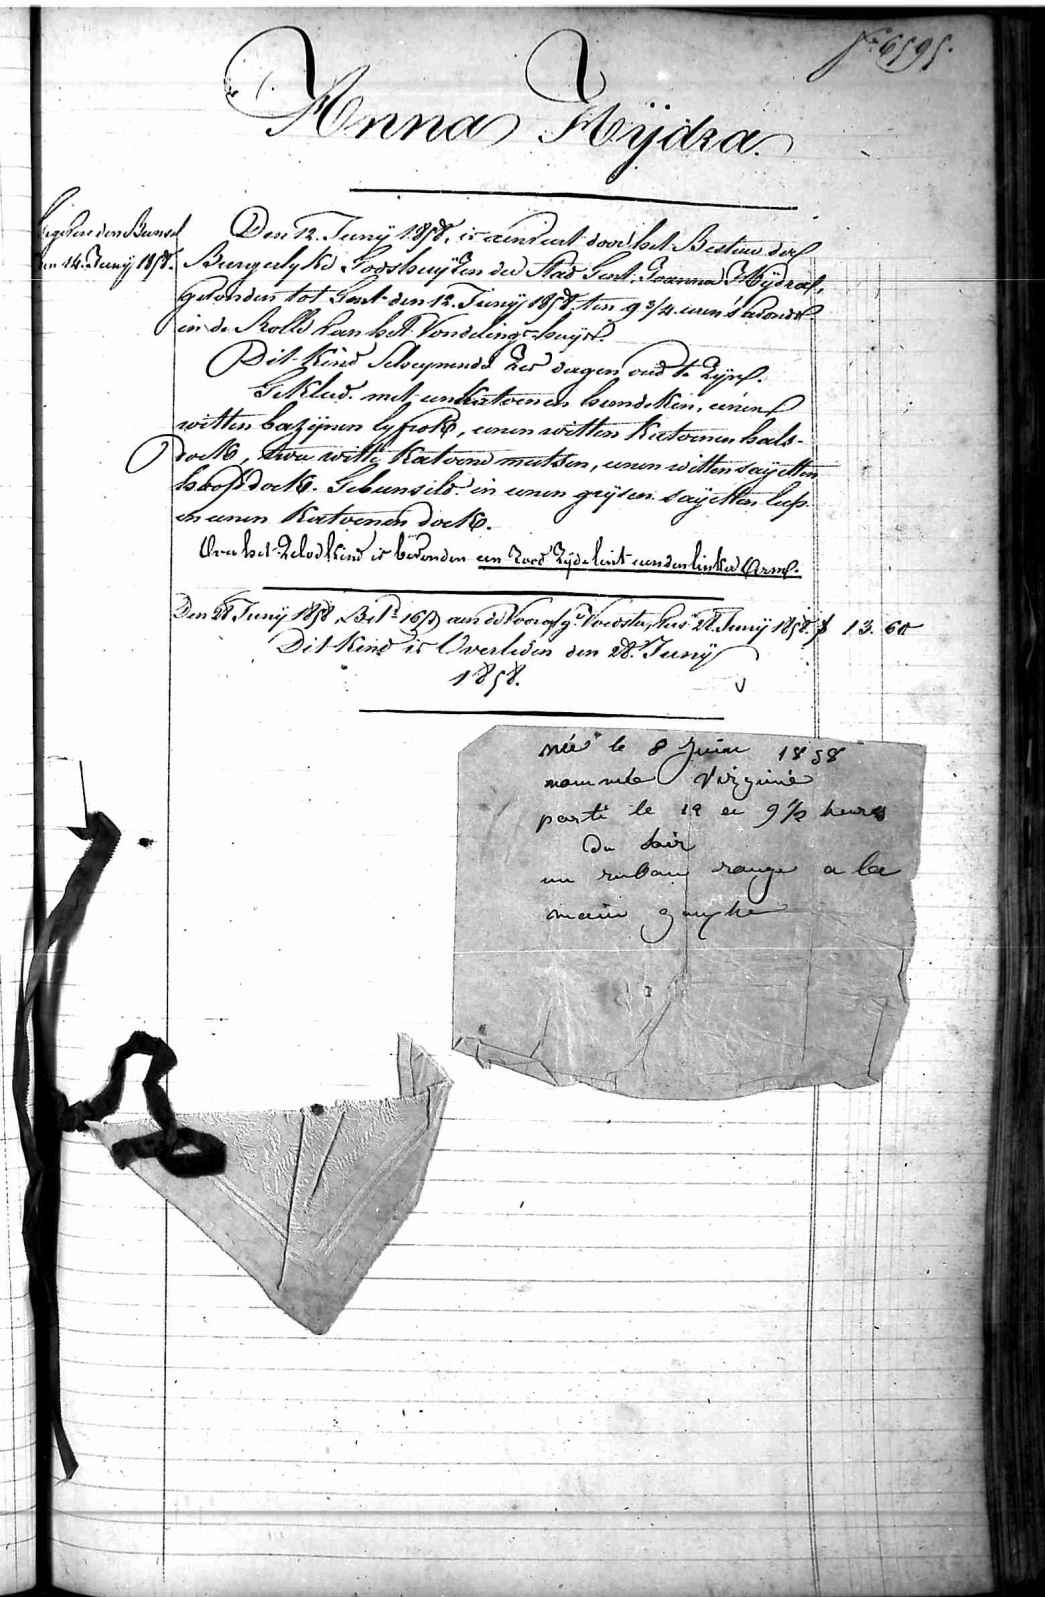 N.° 6595.
Anna Hÿdra.
den 14. Junÿ 1858.
Den 12. Junÿ 1858, is aenveert door het Bestier der
Burgerlyke Godshuÿzen der Stad Gent, Joanna Hÿdra,
gevonden tot Gent den 12. Junÿ 1858, ten 9 3/4 uren 's avonds
in de Rolle van het Vondelings-huÿs.
Dit Kind scheynende zes dagen oud te zÿn.
Gekleed met een katoenen hemdekin, eenen
witten bazÿnen lyfrok, eenen witten katoenen hals-
doek, twee witte katoene mutsen, eenen witten saÿetten
hoofdoek. Gebunseld in eenen grÿsen saÿetten lap
en eenen katoenen doek.
Over het zelve Kind is bevonden een rood zÿde lint aen den linker Arm.
Den 28 Junÿ 1858, Bet. 16 aen de Voorsg. Voedster, huis 28 Junÿ 1858. f 13. 60
Dit Kind is Overleden den 28. Junÿ
1858.
née le 8 juin 1858
nommée Virginie
parti le 12 a 9 1/2 heures
du soir
un ruban rouge a la
main gauche